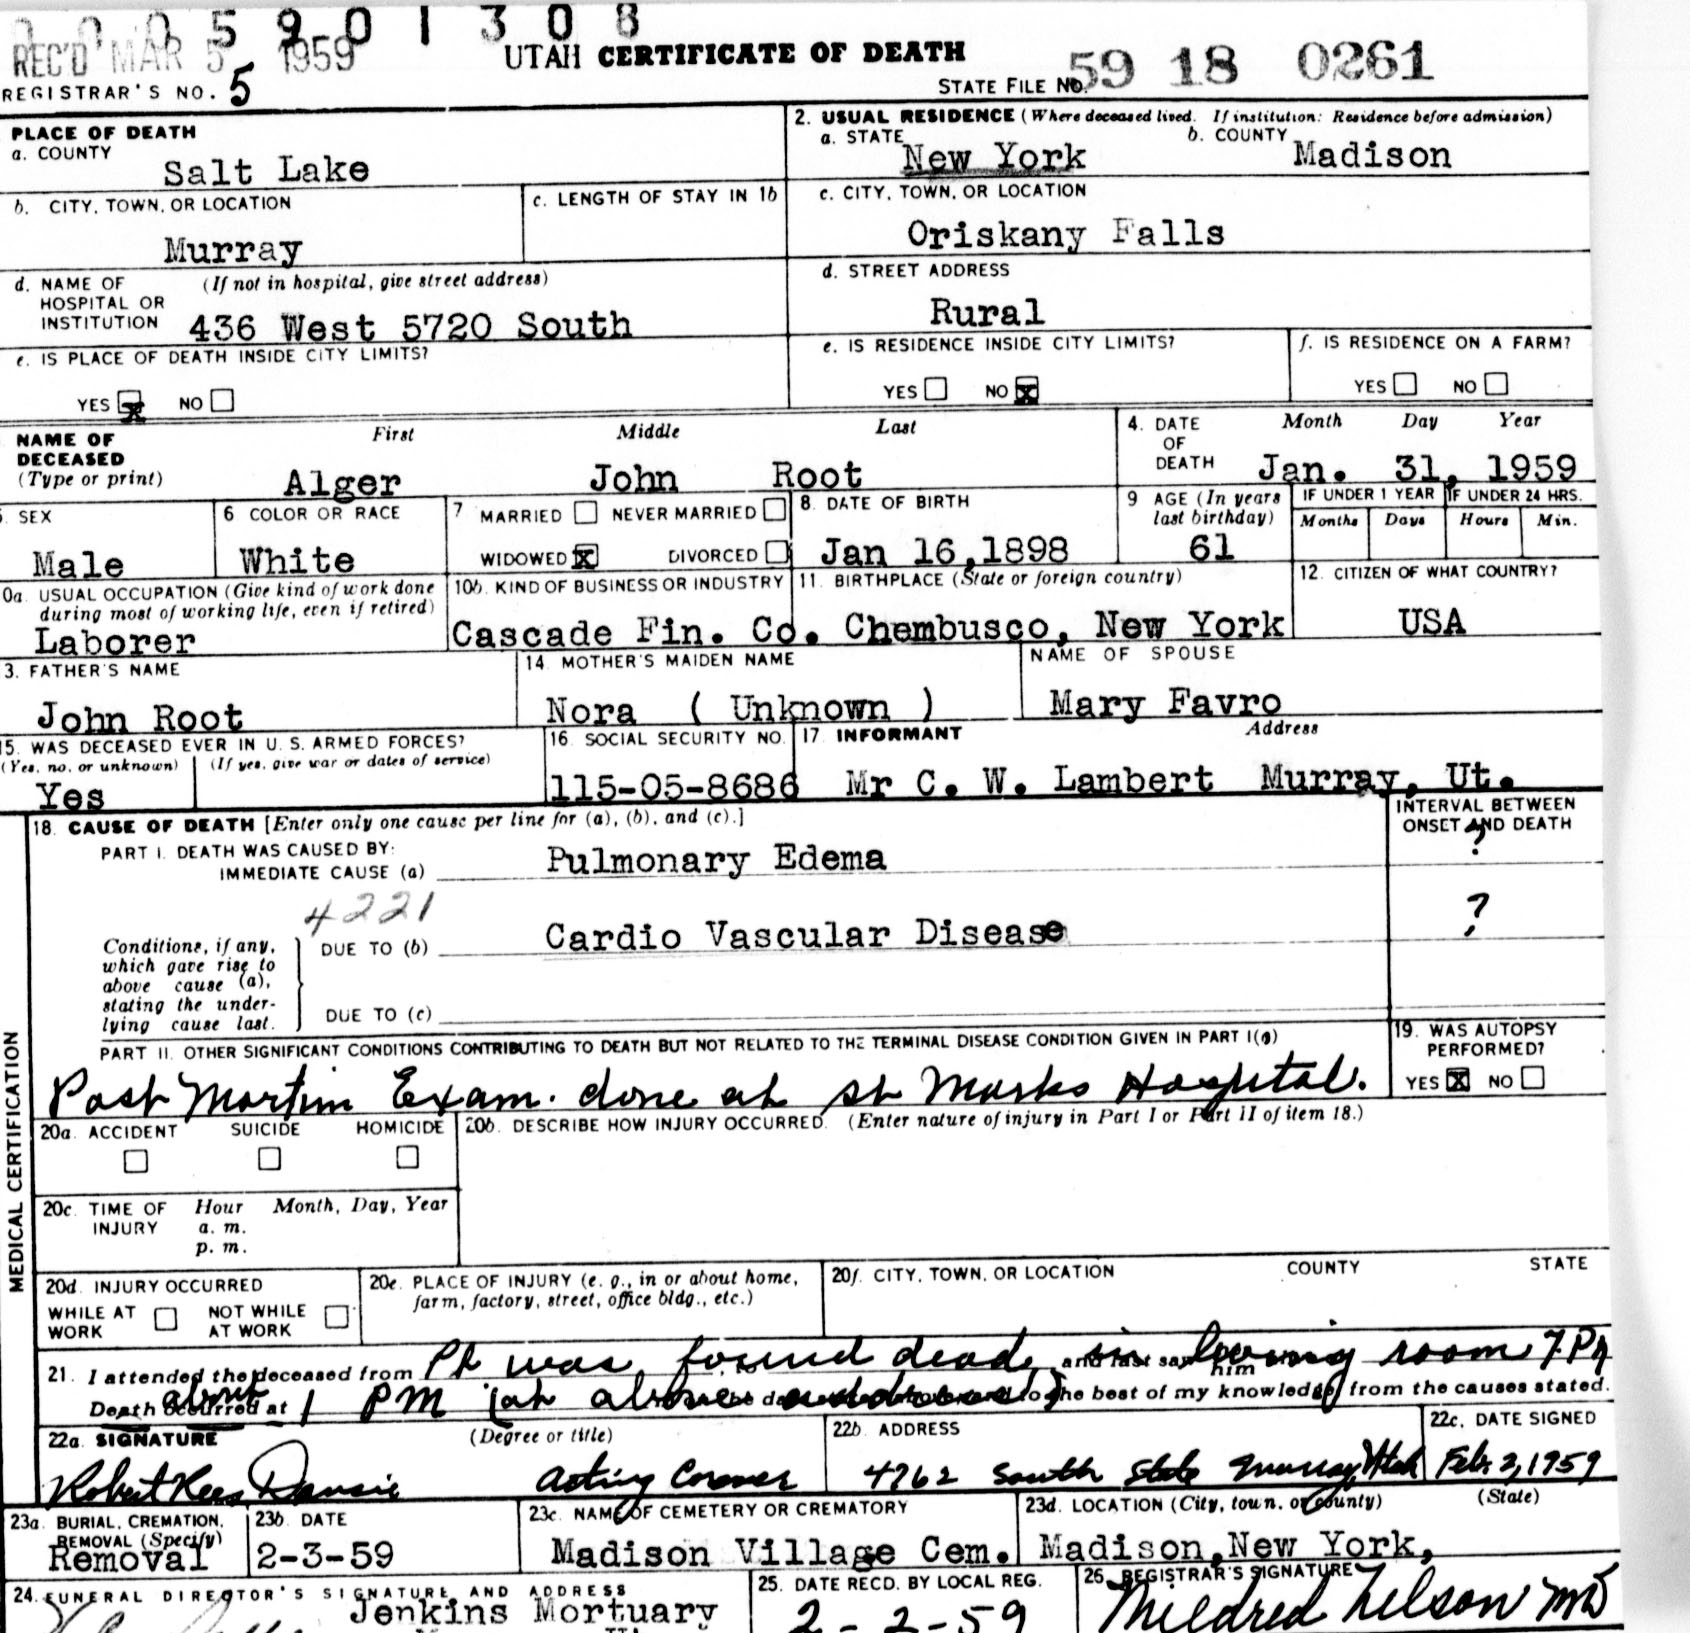 0 0 0 5 9 0 1 3 0 8
REC'D MAR 5 1959
UTAH CERTIFICATE OF DEATH
REGISTRAR'S NO. 5
STATE FILE NO. 59 18 0261
PLACE OF DEATH
a. COUNTY
Salt Lake
2. USUAL RESIDENCE (Where deceased lived. If institution: Residence before admission)
a. STATE New York
b. COUNTY Madison
b. CITY, TOWN, OR LOCATION
Murray
c. LENGTH OF STAY IN 1b
c. CITY, TOWN, OR LOCATION
Oriskany Falls
d. NAME OF (If not in hospital, give street address)
HOSPITAL OR
INSTITUTION 436 West 5720 South
d. STREET ADDRESS
Rural
e. IS PLACE OF DEATH INSIDE CITY LIMITS?
YES X NO
e. IS RESIDENCE INSIDE CITY LIMITS?
YES NO X
f. IS RESIDENCE ON A FARM?
YES NO
NAME OF
DECEASED
(Type or print)
First Middle Last
Alger John Root
4. DATE
OF
DEATH
Month Day Year
Jan. 31, 1959
5. SEX
Male
6 COLOR OR RACE
White
7 MARRIED NEVER MARRIED
WIDOWED X DIVORCED
8. DATE OF BIRTH
Jan 16,1898
9 AGE (In years
last birthday)
61
IF UNDER 1 YEAR IF UNDER 24 HRS.
Months Days Hours Min.
0a. USUAL OCCUPATION (Give kind of work done
during most of working life, even if retired)
Laborer
10b. KIND OF BUSINESS OR INDUSTRY
Cascade Fin. Co.
11. BIRTHPLACE (State or foreign country)
Chembusco, New York
12. CITIZEN OF WHAT COUNTRY?
USA
3. FATHER'S NAME
John Root
14. MOTHER'S MAIDEN NAME
Nora ( Unknown )
NAME OF SPOUSE
Mary Favro
15. WAS DECEASED EVER IN U. S. ARMED FORCES?
(Yes, no, or unknown) (If yes, give war or dates of service)
Yes
16. SOCIAL SECURITY NO.
115-05-8686
17. INFORMANT Address
Mr C. W. Lambert Murray, Ut.
MEDICAL CERTIFICATION
18. CAUSE OF DEATH [Enter only one cause per line for (a), (b), and (c).]
INTERVAL BETWEEN
ONSET AND DEATH
PART I. DEATH WAS CAUSED BY:
IMMEDIATE CAUSE (a) Pulmonary Edema ?
4221
Conditions, if any,
which gave rise to
above cause (a),
stating the under-
lying cause last.
DUE TO (b) Cardio Vascular Disease ?
DUE TO (c)
PART II. OTHER SIGNIFICANT CONDITIONS CONTRIBUTING TO DEATH BUT NOT RELATED TO THE TERMINAL DISEASE CONDITION GIVEN IN PART I(a)
Post Mortim Exam. done at St Marks Hospital.
19. WAS AUTOPSY
PERFORMED?
YES X NO
20a. ACCIDENT SUICIDE HOMICIDE
20b. DESCRIBE HOW INJURY OCCURRED. (Enter nature of injury in Part I or Part II of item 18.)
20c. TIME OF Hour Month, Day, Year
INJURY a. m.
p. m.
20d. INJURY OCCURRED
WHILE AT NOT WHILE
WORK AT WORK
20e. PLACE OF INJURY (e. g., in or about home,
farm, factory, street, office bldg., etc.)
20f. CITY, TOWN, OR LOCATION COUNTY STATE
21. I attended the deceased from Pt was found dead and last saw him in living room 7 PM
Death occurred at about 1 PM (at above address) to the best of my knowledge, from the causes stated.
22a. SIGNATURE (Degree or title)
Robert Rees Dansie Acting Coroner
22b. ADDRESS
4762 South State Murray, Utah
22c. DATE SIGNED
Feb. 2, 1959
23a. BURIAL, CREMATION,
REMOVAL (Specify)
Removal
23b. DATE
2-3-59
23c. NAME OF CEMETERY OR CREMATORY
Madison Village Cem.
23d. LOCATION (City, town, or county) (State)
Madison, New York,
24. FUNERAL DIRECTOR'S SIGNATURE AND ADDRESS
Jenkins Mortuary
25. DATE RECD. BY LOCAL REG.
2-2-59
26. REGISTRAR'S SIGNATURE
Mildred Nelson MD